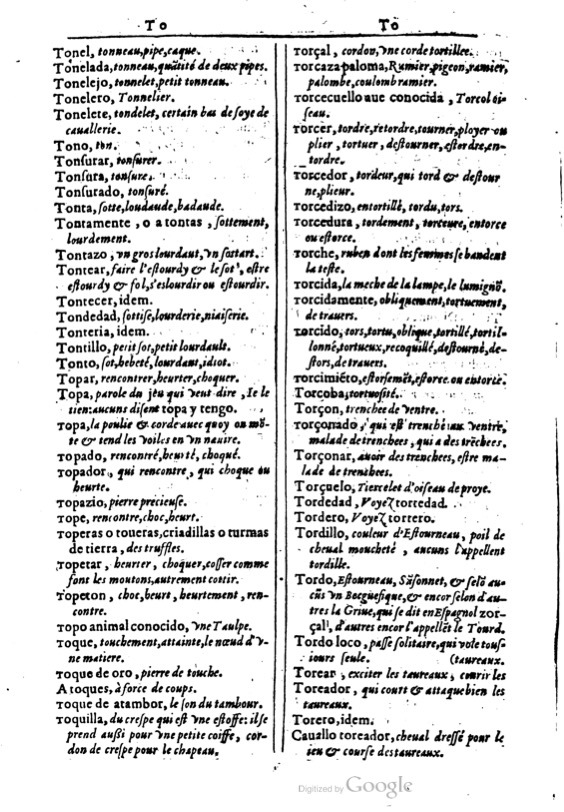 TO
Tonel, tonneau, pipe, caque.
Tonelada, tonneau, quãtité de deux pipes.
Tonelejo, tonnelet, petit tonneau.
Tonelero, Tonnelier.
Tonelete, tondelet, certain bas de ſoye de
cauallerie.
Tono, ton.
Tonſurar, tonſurer.
Tonſura, tonſure.
Tonſurado, tonſuré.
Tonta, ſotte, loudaude, badaude.
Tontamente, o a tontas, ſottement,
lourdement.
Tontazo, vn gros lourdaut, vn ſortart.
Tontear, faire l'eſtourdy & le ſot, eſtre
eſtourdy & fol, s'eslourdir ou eſtourdir.
Tontecer, idem.
Tondedad, ſottiſe, lourderie, niaiſerie.
Tonteria, idem.
Tontillo, petit ſot, petit lourdault.
Tonto, ſot, bebeté, lourdant, idiot.
Topar, rencontrer, heurter, choquer.
Topa, parole du jeu qui veut dire, Ie le
tien: aucuns diſent topa y tengo.
Topa, la poulie & corde auec quoy on mõ-
te & tend les voiles en vn nauire.
Topado, rencontré, heurté, choqué.
Topador, qui rencontre, qui choque ou
heurte.
Topazio, pierre précieuſe.
Tope, rencontre, choc, heurt.
Toperas o toueras, criadillas o turmas
de tierra, des truffles.
Topetar, heurter, choquer, coſſer comme
font les moutons, autrement cottir.
Topeton, choc, heurt, heurtement, ren-
contre.
Topo animal conocido, vne Taulpe.
Toque, touchement, attainte, le nœud d'v-
ne matiere.
Toque de oro, pierre de touche.
A toques, à force de coups.
Toque de atambor, le ſon du tambour.
Toquilla, du creſpe qui eſt vne eſtoffe: il ſe
prend auſſi pour vne petite coiffe, cor-
don de creſpe pour le chapeau.
TO
Torçal, cordon, vne corde tortillee.
Torcaza paloma, Ramier, pigeon, ramier,
palombe, coulomb ramier.
Torcecuello aue conocida, Torcol oi-
ſeau.
Torcer, tordre, retordre, tourner, ployer ou
plier, tortuer, deſtourner, eſtordre, en-
tordre.
Torcedor, tordeur, qui tord & deſtour
ne, plieur.
Torcedizo, entortillé, tordu, tors.
Torcedura, tordement, torceure, entorce
ou eſtorce.
Torche, ruben dont les femmes ſe bandent
la teſte.
Torcida, la meche de la lampe, le lumignõ.
Torcidamente, obliquement, tortuement,
de trauers.
Torcido, tors, tortu, oblique, tortillé, tortil-
lonné, tortueux, recoquillé, deſtourné, de-
ſtors, de trauers.
Torcimiẽto, eſtorſemẽt, eſtorce ou entorſe.
Torçoba, tortuoſité.
Torçon, trenchee de ventre.
Torçonado, qui eſt trenché aux ventre,
malade de trenchees, qui a des trẽchees.
Torçonar, auoir des trenchees, eſtre ma-
lade de trenchees.
Torçuelo, Tiercelet d'oiſeau de proye.
Tordedad, Voyez torcedad.
Tordero, Voyez tortero.
Tordillo, couleur d'Eſtourneau, poil de
cheual moucheté, aucuns l'appellent
tordille.
Tordo, Eſtourneau, Sãſonnet, & ſelõ au-
cũs vn Becquefique, & encor ſelon d'au-
tres la Griue, qui ſe dit en Eſpagnol zor-
çal, d'autres encor l'appellẽt le Tourd.
Tordo loco, paſſe ſolitaire, qui vole touſ-
iours ſeule. (taureaux.
Torear, exciter les taureaux, courir les
Toreador, qui court & attaque bien les
taureaux.
Torero, idem.
Cauallo toreador, cheual dreſſé pour le
ieu & courſe des taureaux.
Digitized by Google